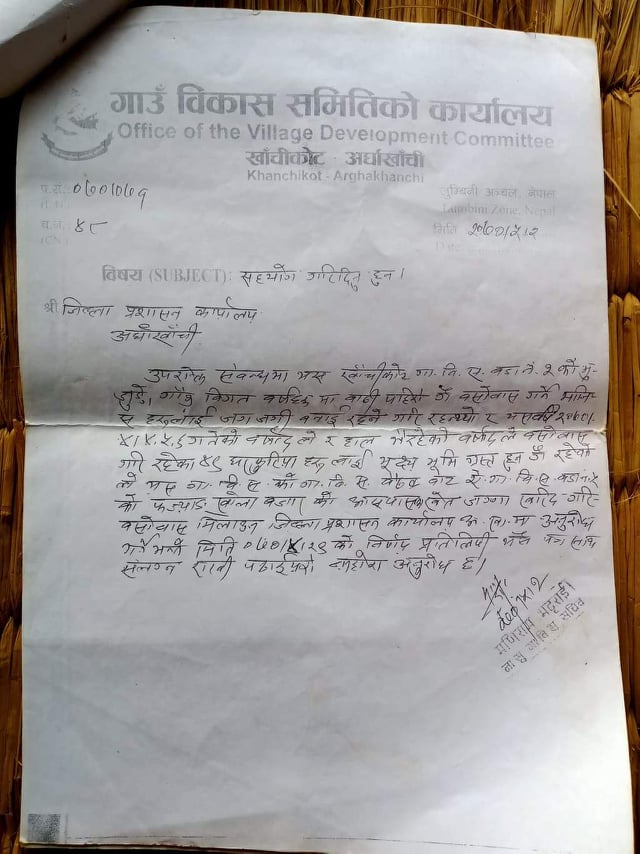 गाउँ विकास समितिको कार्यालय
Office of the Village Development Committee
खाँचीकोट - अर्घाखाँची
Khanchikot - Arghakhanchi
प.सं. ०७०।०७१
च.नं. ४८
(CN)
लुम्बिनी अञ्चल, नेपाल
Lumbini Zone, Nepal
मिति २०७०।५।२
Date
विषय (SUBJECT): सहयोग गरिदिनु हुन।
श्री जिल्ला प्रशासन कार्यालय
अर्घाखाँची
उपरोक्त संबन्धमा यस खाँचीकोट गा. वि. स. वडा नं. २ को
गाँउ विगत वर्षदेखि मा बाढी पहिरो बसोवास गर्ने
हरुलाई बनाई रहेने गरी रहन्थ्यो र यसवर्ष २०७०।
४।४,५,६ गतेको वर्षादले र हाल भैरहेको वर्षादले बसोवास
गरि रहेका ४९ घरधुरीया हरुलाई भूमि ग्रस्त हुन रहेको
ले यस गा. वि. स. को गा. वि. स. बाट गा. वि. स. वडा नं. २
को खोला बगर को आसपास जग्गा खरिद गरि
बसोवास मिलाउन जिल्ला प्रशासन कार्यालय अ. खा. मा अनुरोध
गर्ने भन्ने मिति ०७०।४।२९ को निर्णय प्रतिलिपी यसै पत्र साथ
संलग्न राखी पठाईएको व्यहोरा अनुरोध छ।
२०७०।५।२
मणिराम भट्टराई
गा वि स सचिव